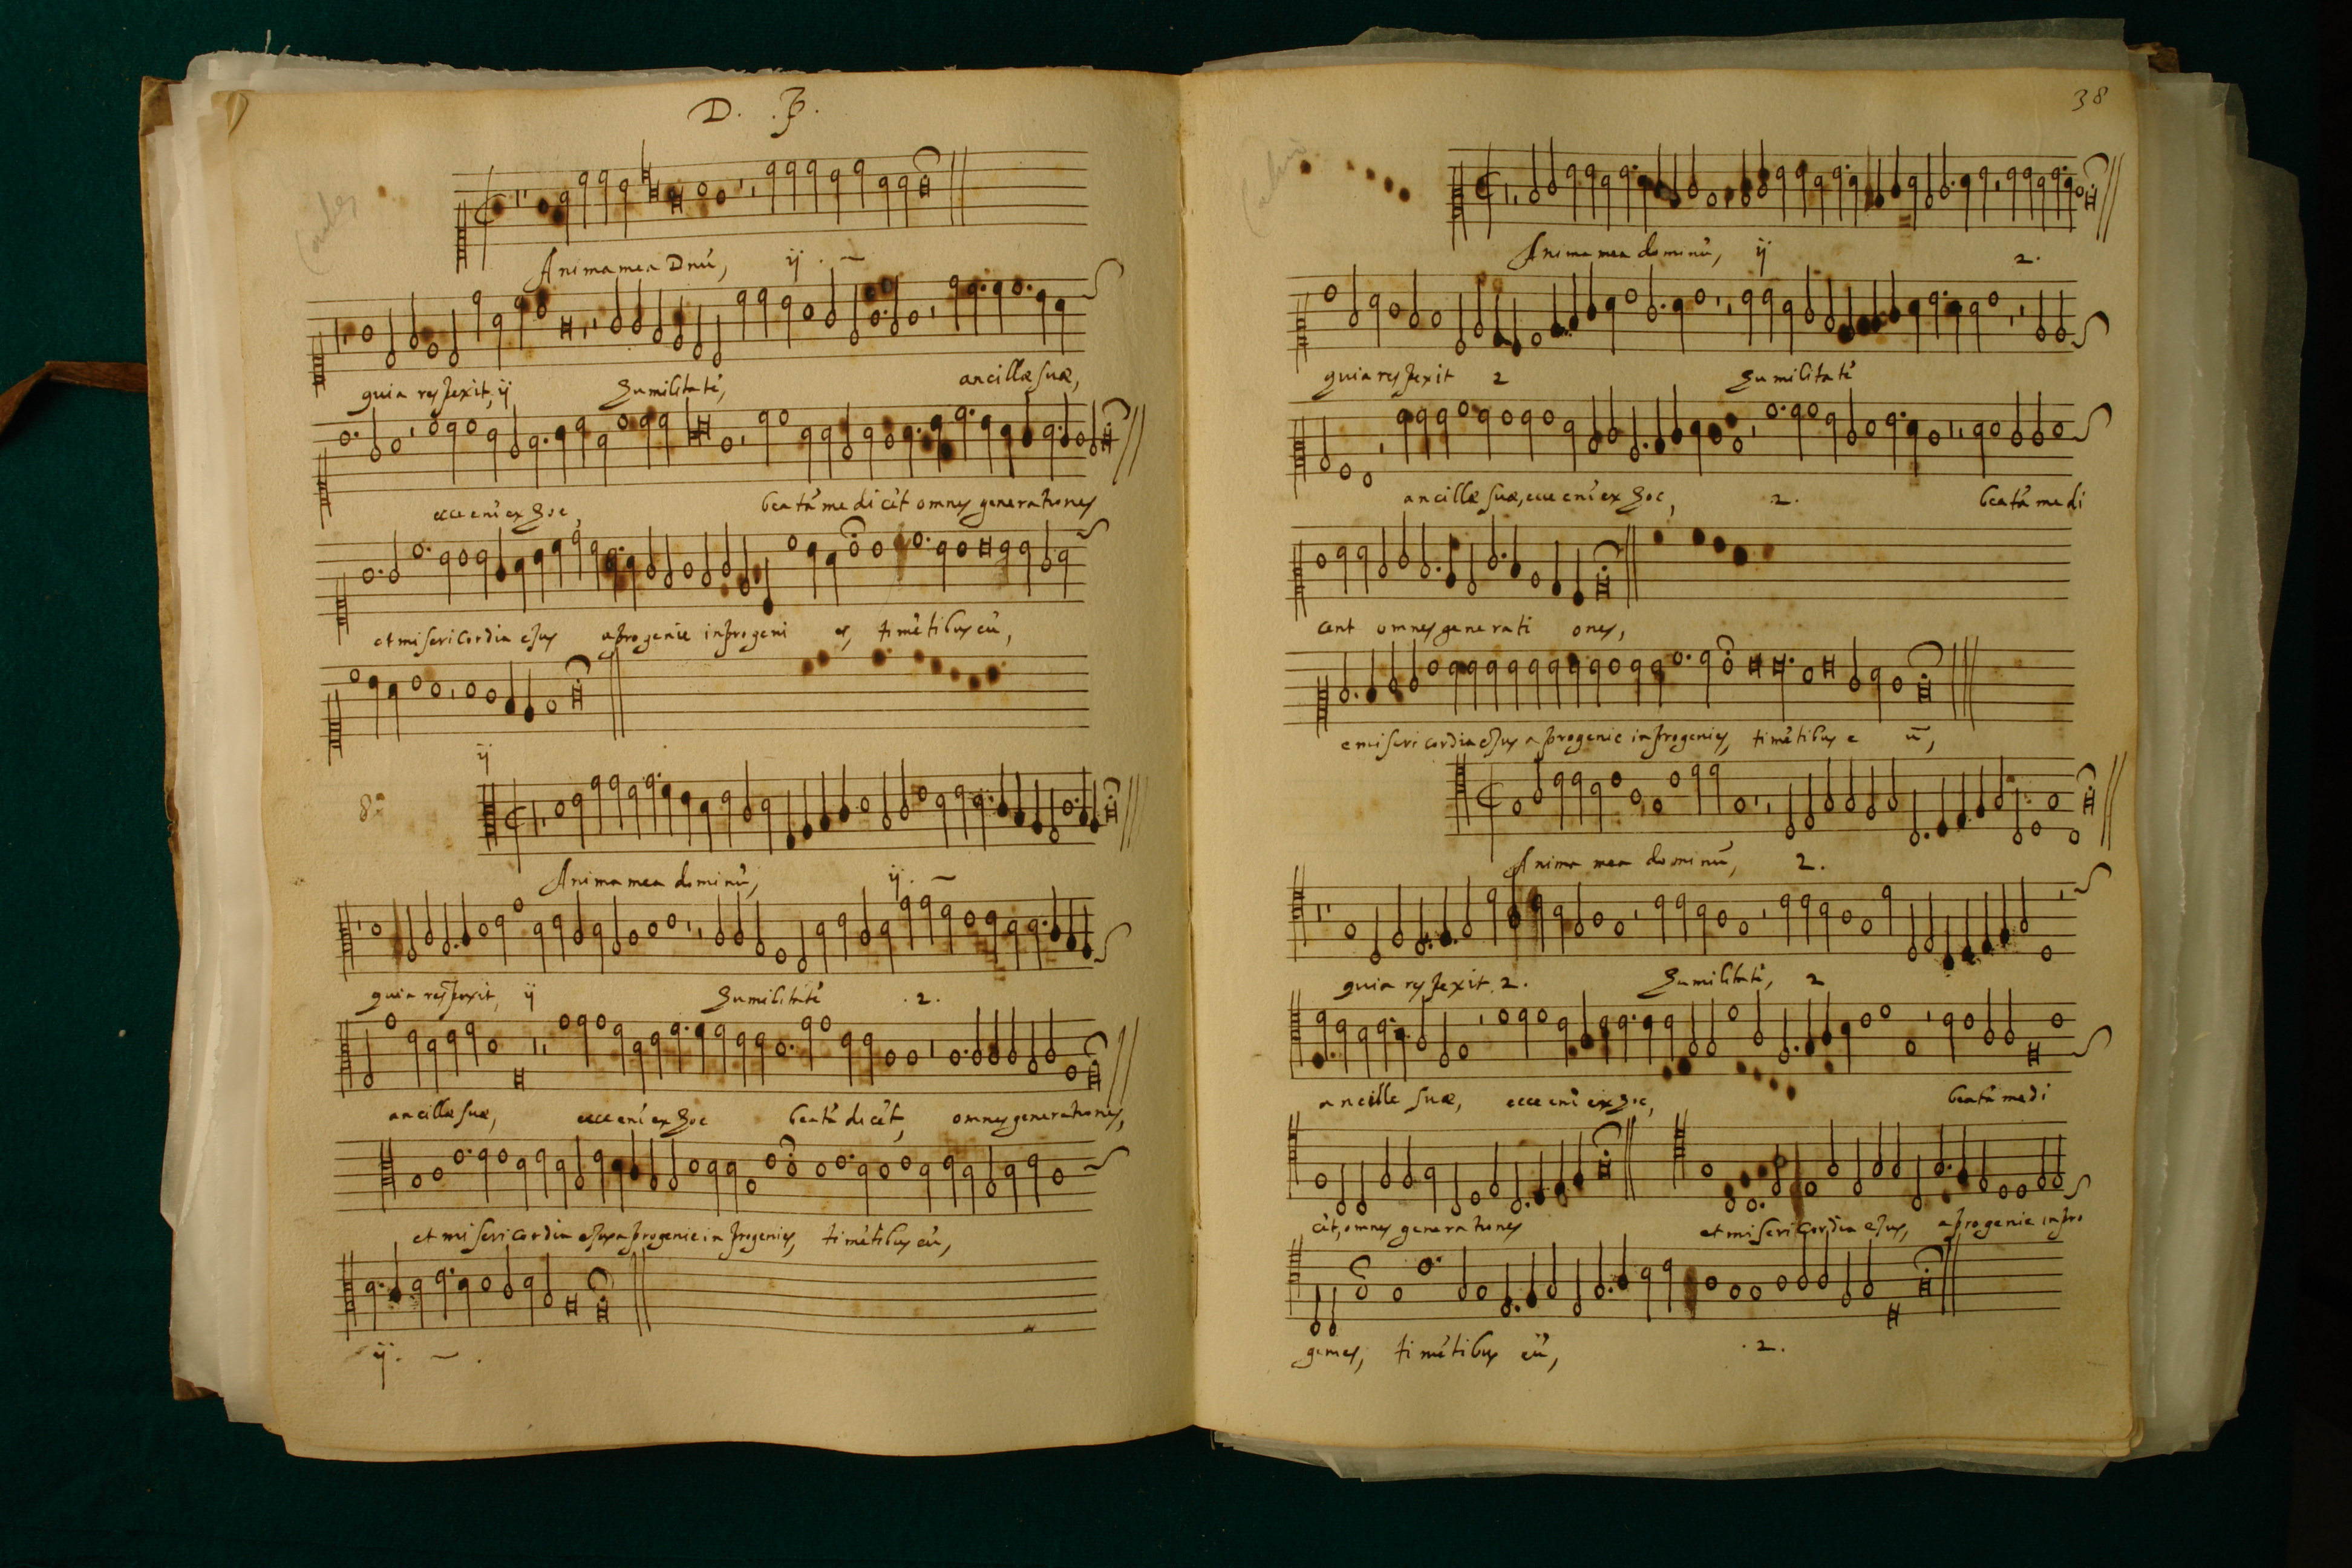 D. .P.
Anima mea Dnū, ij . ~
quia respexit, ij humilitatē, ancillæ suæ,
ecce enī ex hoc, beatā me dicēt omnes generationes
et misericordia ejus a progenie in progeni es, timētibus eū,
ij
8.
Anima mea dominū, ij. ~
quia respexit, ij humilitatē .2.
ancillæ suæ, ecce enī ex hoc beatā dicēt, omnes generationes,
et misericordia ejus a progenie in progenies, timētibus eū,
ij. ~ .
38
Anima mea dominū, ij 2.
quia respexit 2 humilitatē
ancillæ suæ, ecce enī ex hoc, 2. beatā me di
cent omnes generati ones,
e misericordia ejus a progenie in progenies, timētibus e ū,
Anima mea dominū, 2.
quia respexit 2. humilitatē, 2
ancille suæ, ecce enī ex hoc, beatā me di
cēt, omnes generationes et misericordia ejus, a progenie in pro
genies, timētibus eū, .2.